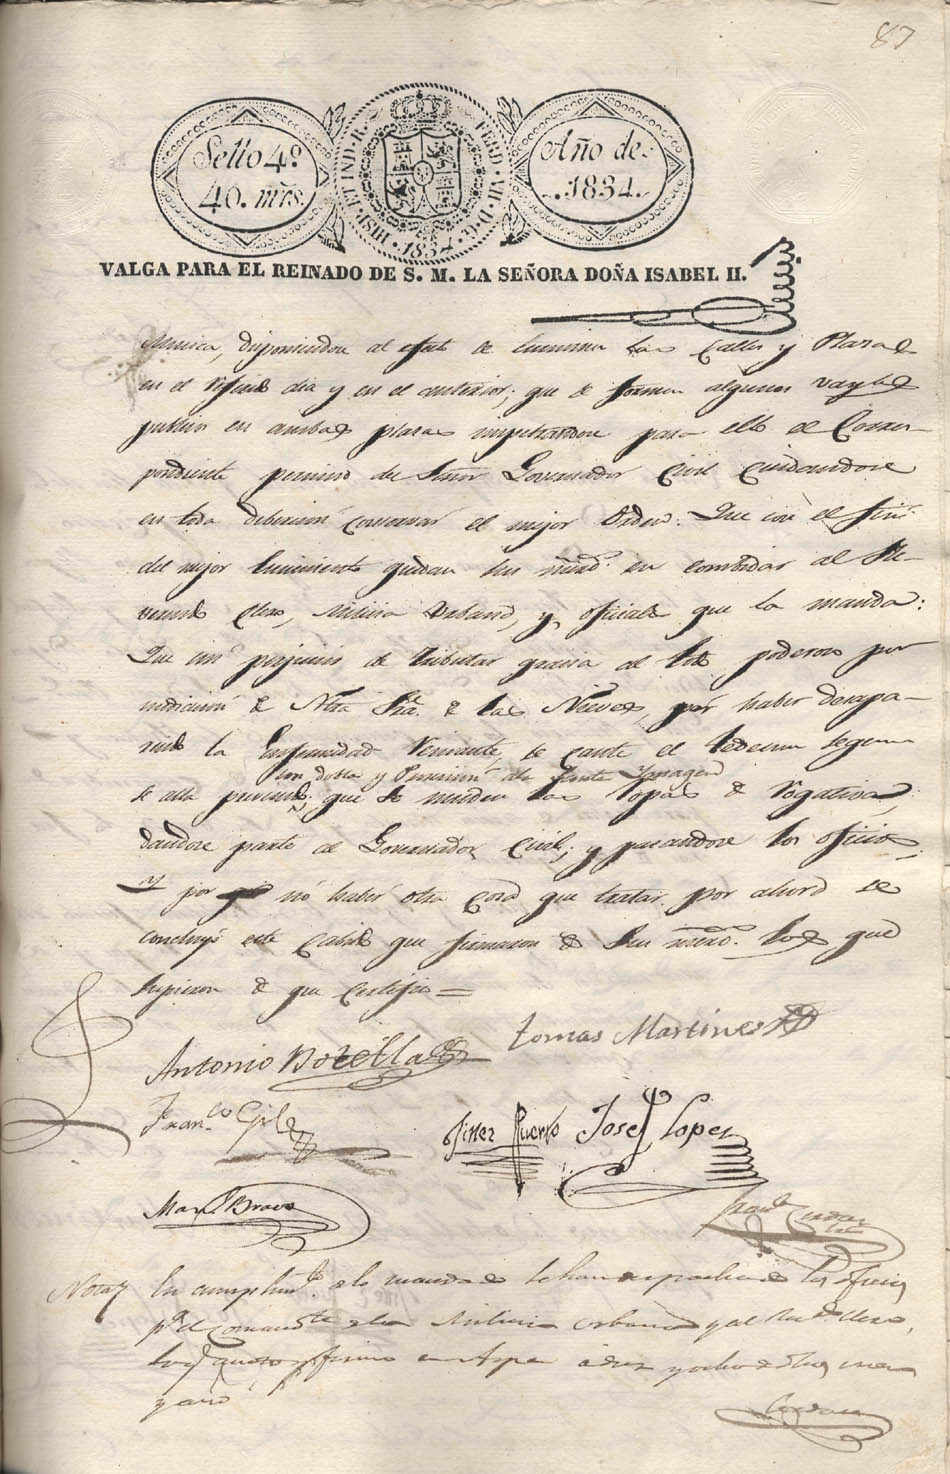 87
Sello 4.º
40. mrs.
HISP. ET IND. R. FERD. VII. D. G. 1834
Año de
1834.
VALGA PARA EL REINADO DE S. M. LA SEÑORA DOÑA ISABEL II.
Musica, disponiendose al efecto se iluminen las Calles y Plazas
en el referido dia y en el anterior; que se formen algunos bayles
publicos en ambas plazas impetrandose para ello el Corres-
pondiente permiso del Señor Governador Civil Cuidandose
en toda deversion conservar el mejor Orden: Que con el fin
del mejor lucimiento quedan sus mrds. en combidar al Re-
verendo Clero, Milicia Urbana, y oficiales que la manda:
Que sin perjuicio de tributar gracias al todo poderoso por
mediacion de Ntra Sra. de las Nieves, por haber desapa-
recido la Enfermedad Reinante, se cante el Tedeum segun
con dobla y Procesion de la Santa Ymagen
se alla prevenido; que se muden las Ropas de Rogativa,
dandose parte al Governador Civil; y pasandose los oficios.
Y por no haber otra cosa que tratar por ahora se
concluyó este Cabildo que firmaron de sus mrds. los que
supieron de que Certifico =
Antonio Botella
tomas Martines
Franco. Gil
Giner Puerto
Josef Lopez
Manl Bravo
Nota
En cumplimto. de lo mandado se han despachado los oficios
pa. el Comandte de la Milicia Urbana y al Rdo. Clero,
lo que anoto y firmo en Aspe a diez y ocho de dhos mes
y año